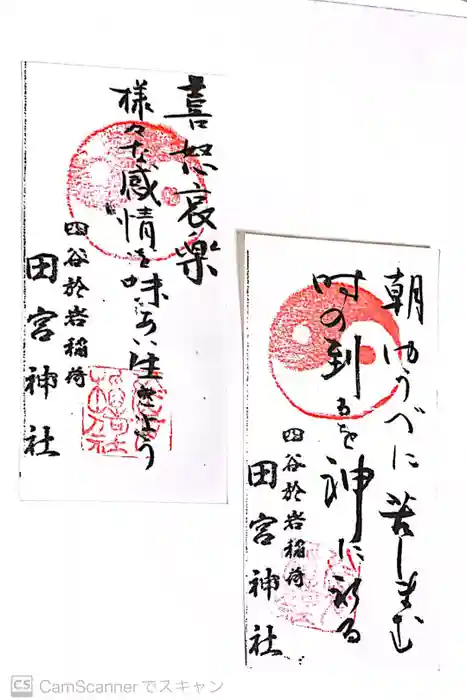 喜怒哀楽
様々な感情を
味あい生きよう
四谷於岩稲荷
田宮神社
朝ゆうべに苦しまむ
時の到るを神に祈る
四谷於岩稲荷
田宮神社
CS CamScannerでスキャン